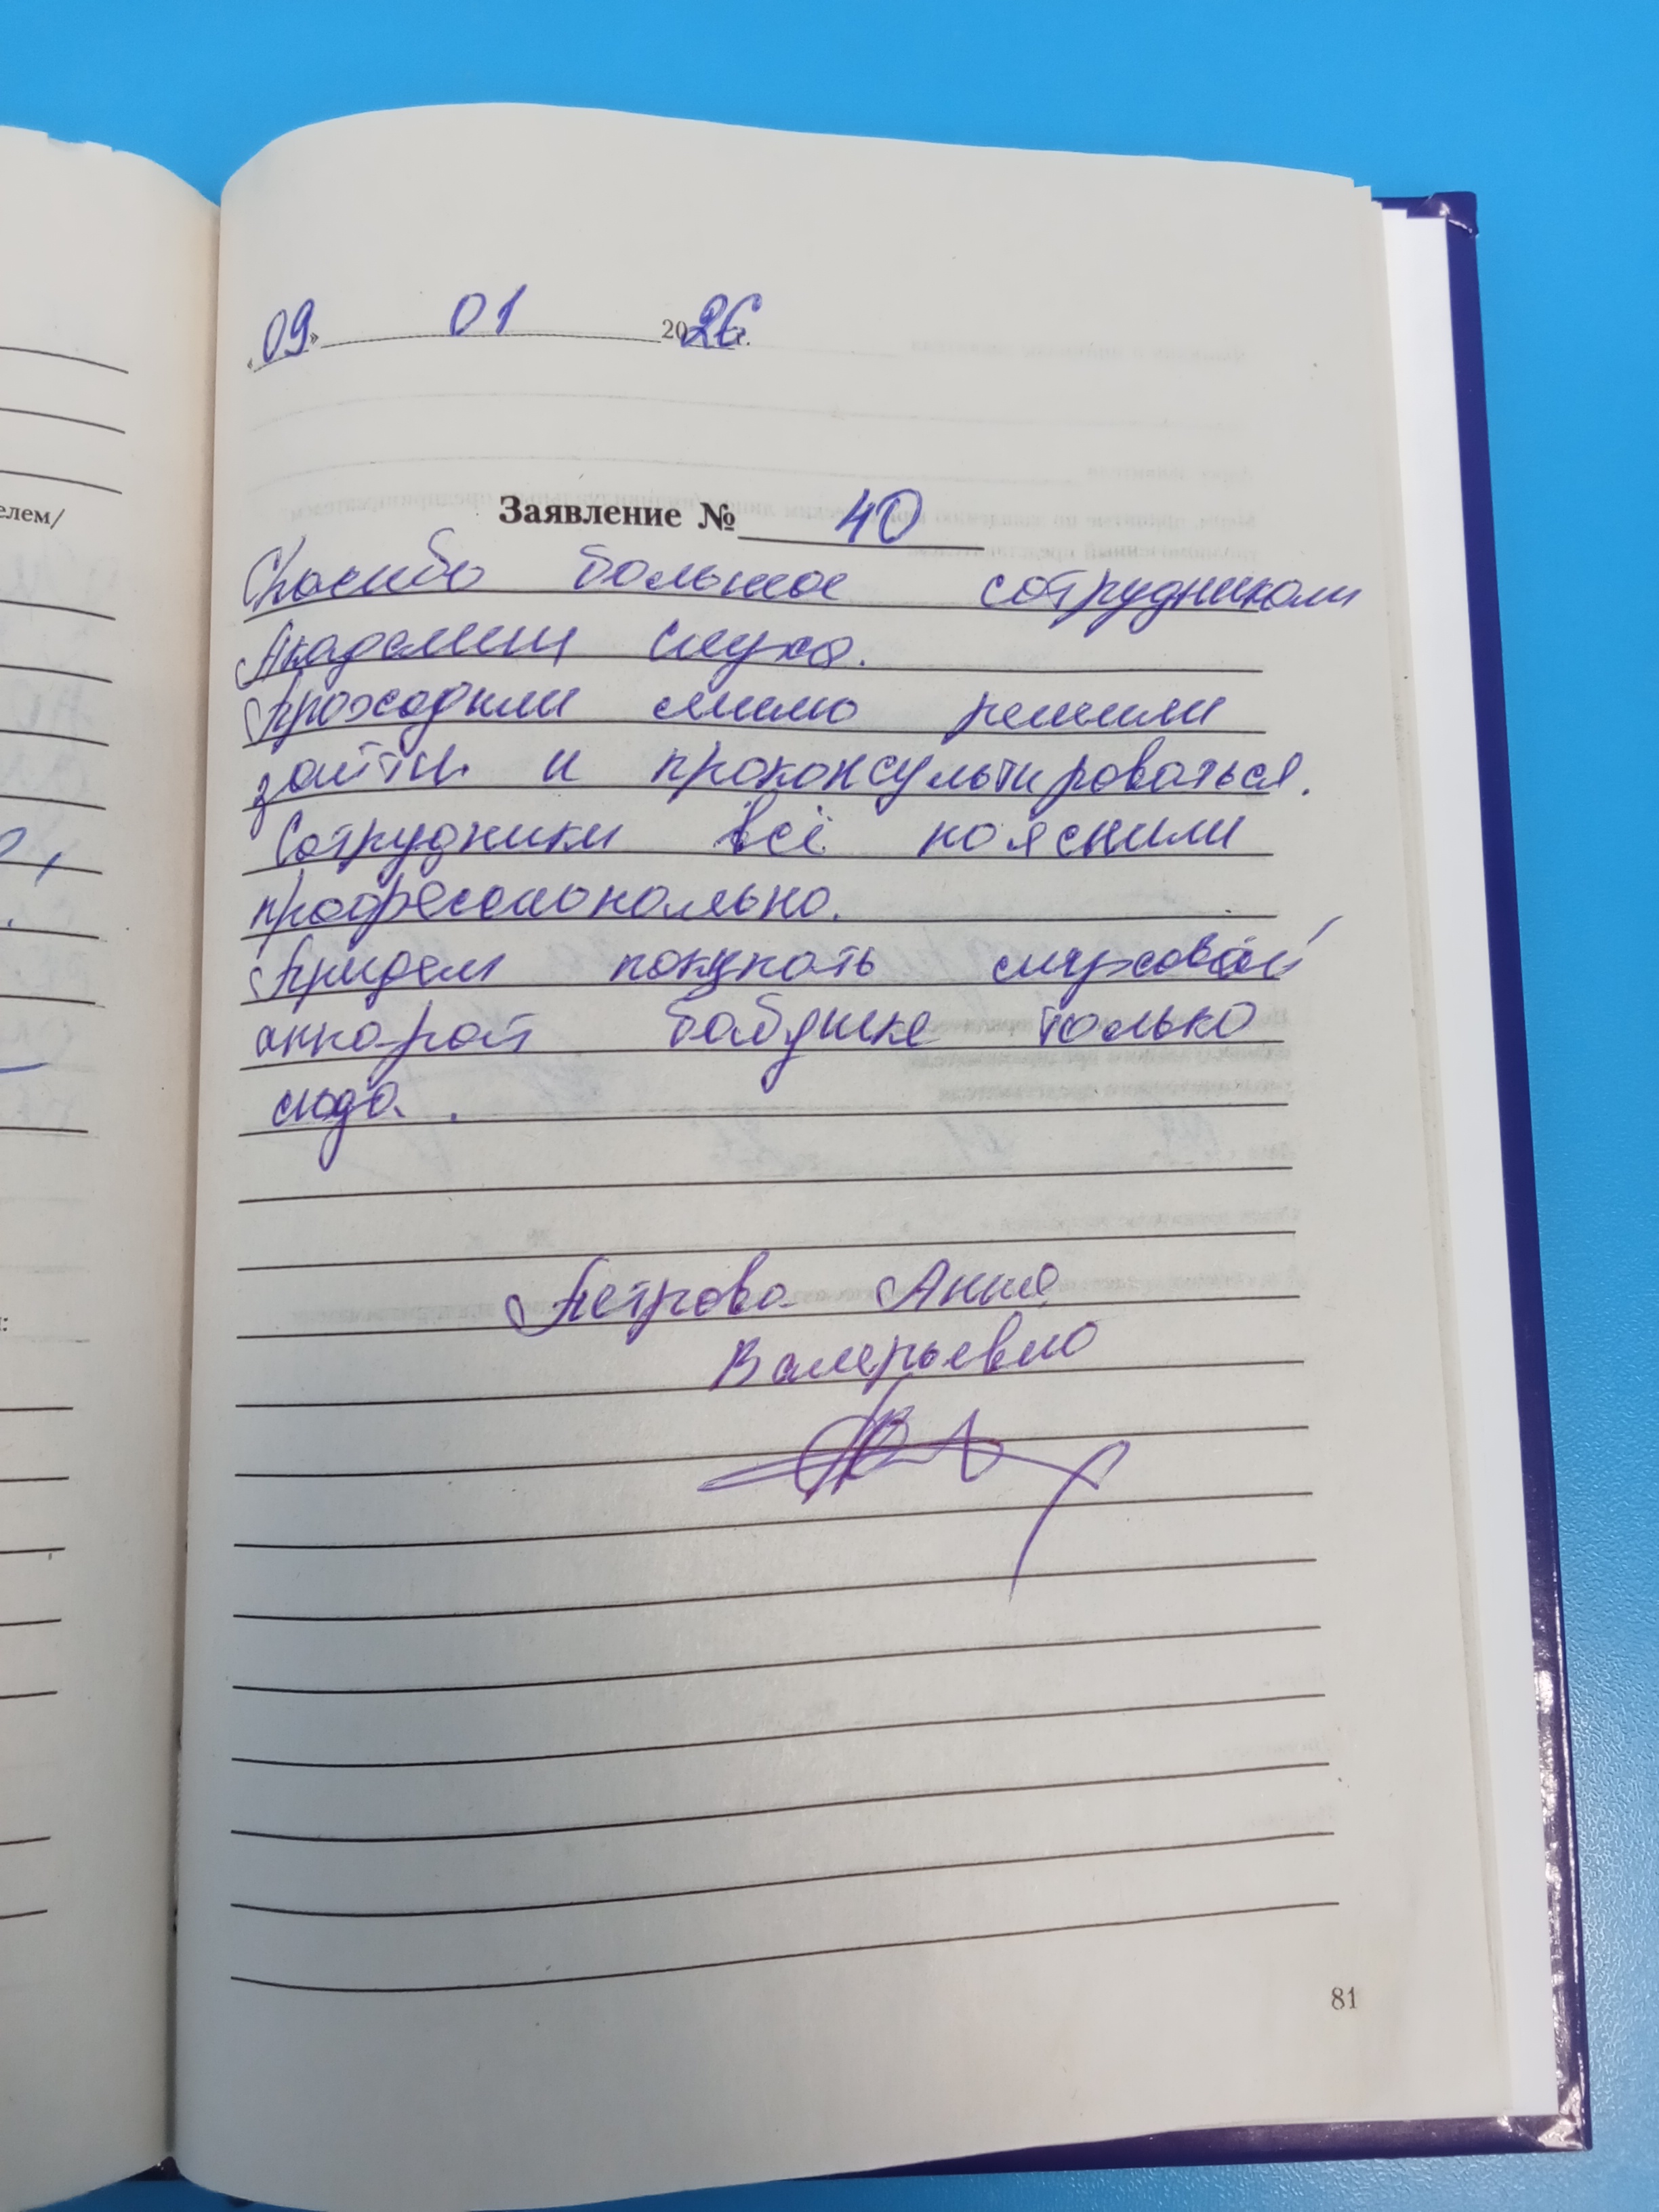 елем/
«09» 01 2026г.
Заявление № 40
Спасибо большое сотрудникам
Академии слуха.
Проходили мимо решили
зайти и проконсультироваться.
Сотрудники всё пояснили
профессионально.
Придем покупать слуховой
аппарат бабушке только
сюда.
Петрова Анна
Валерьевна
81